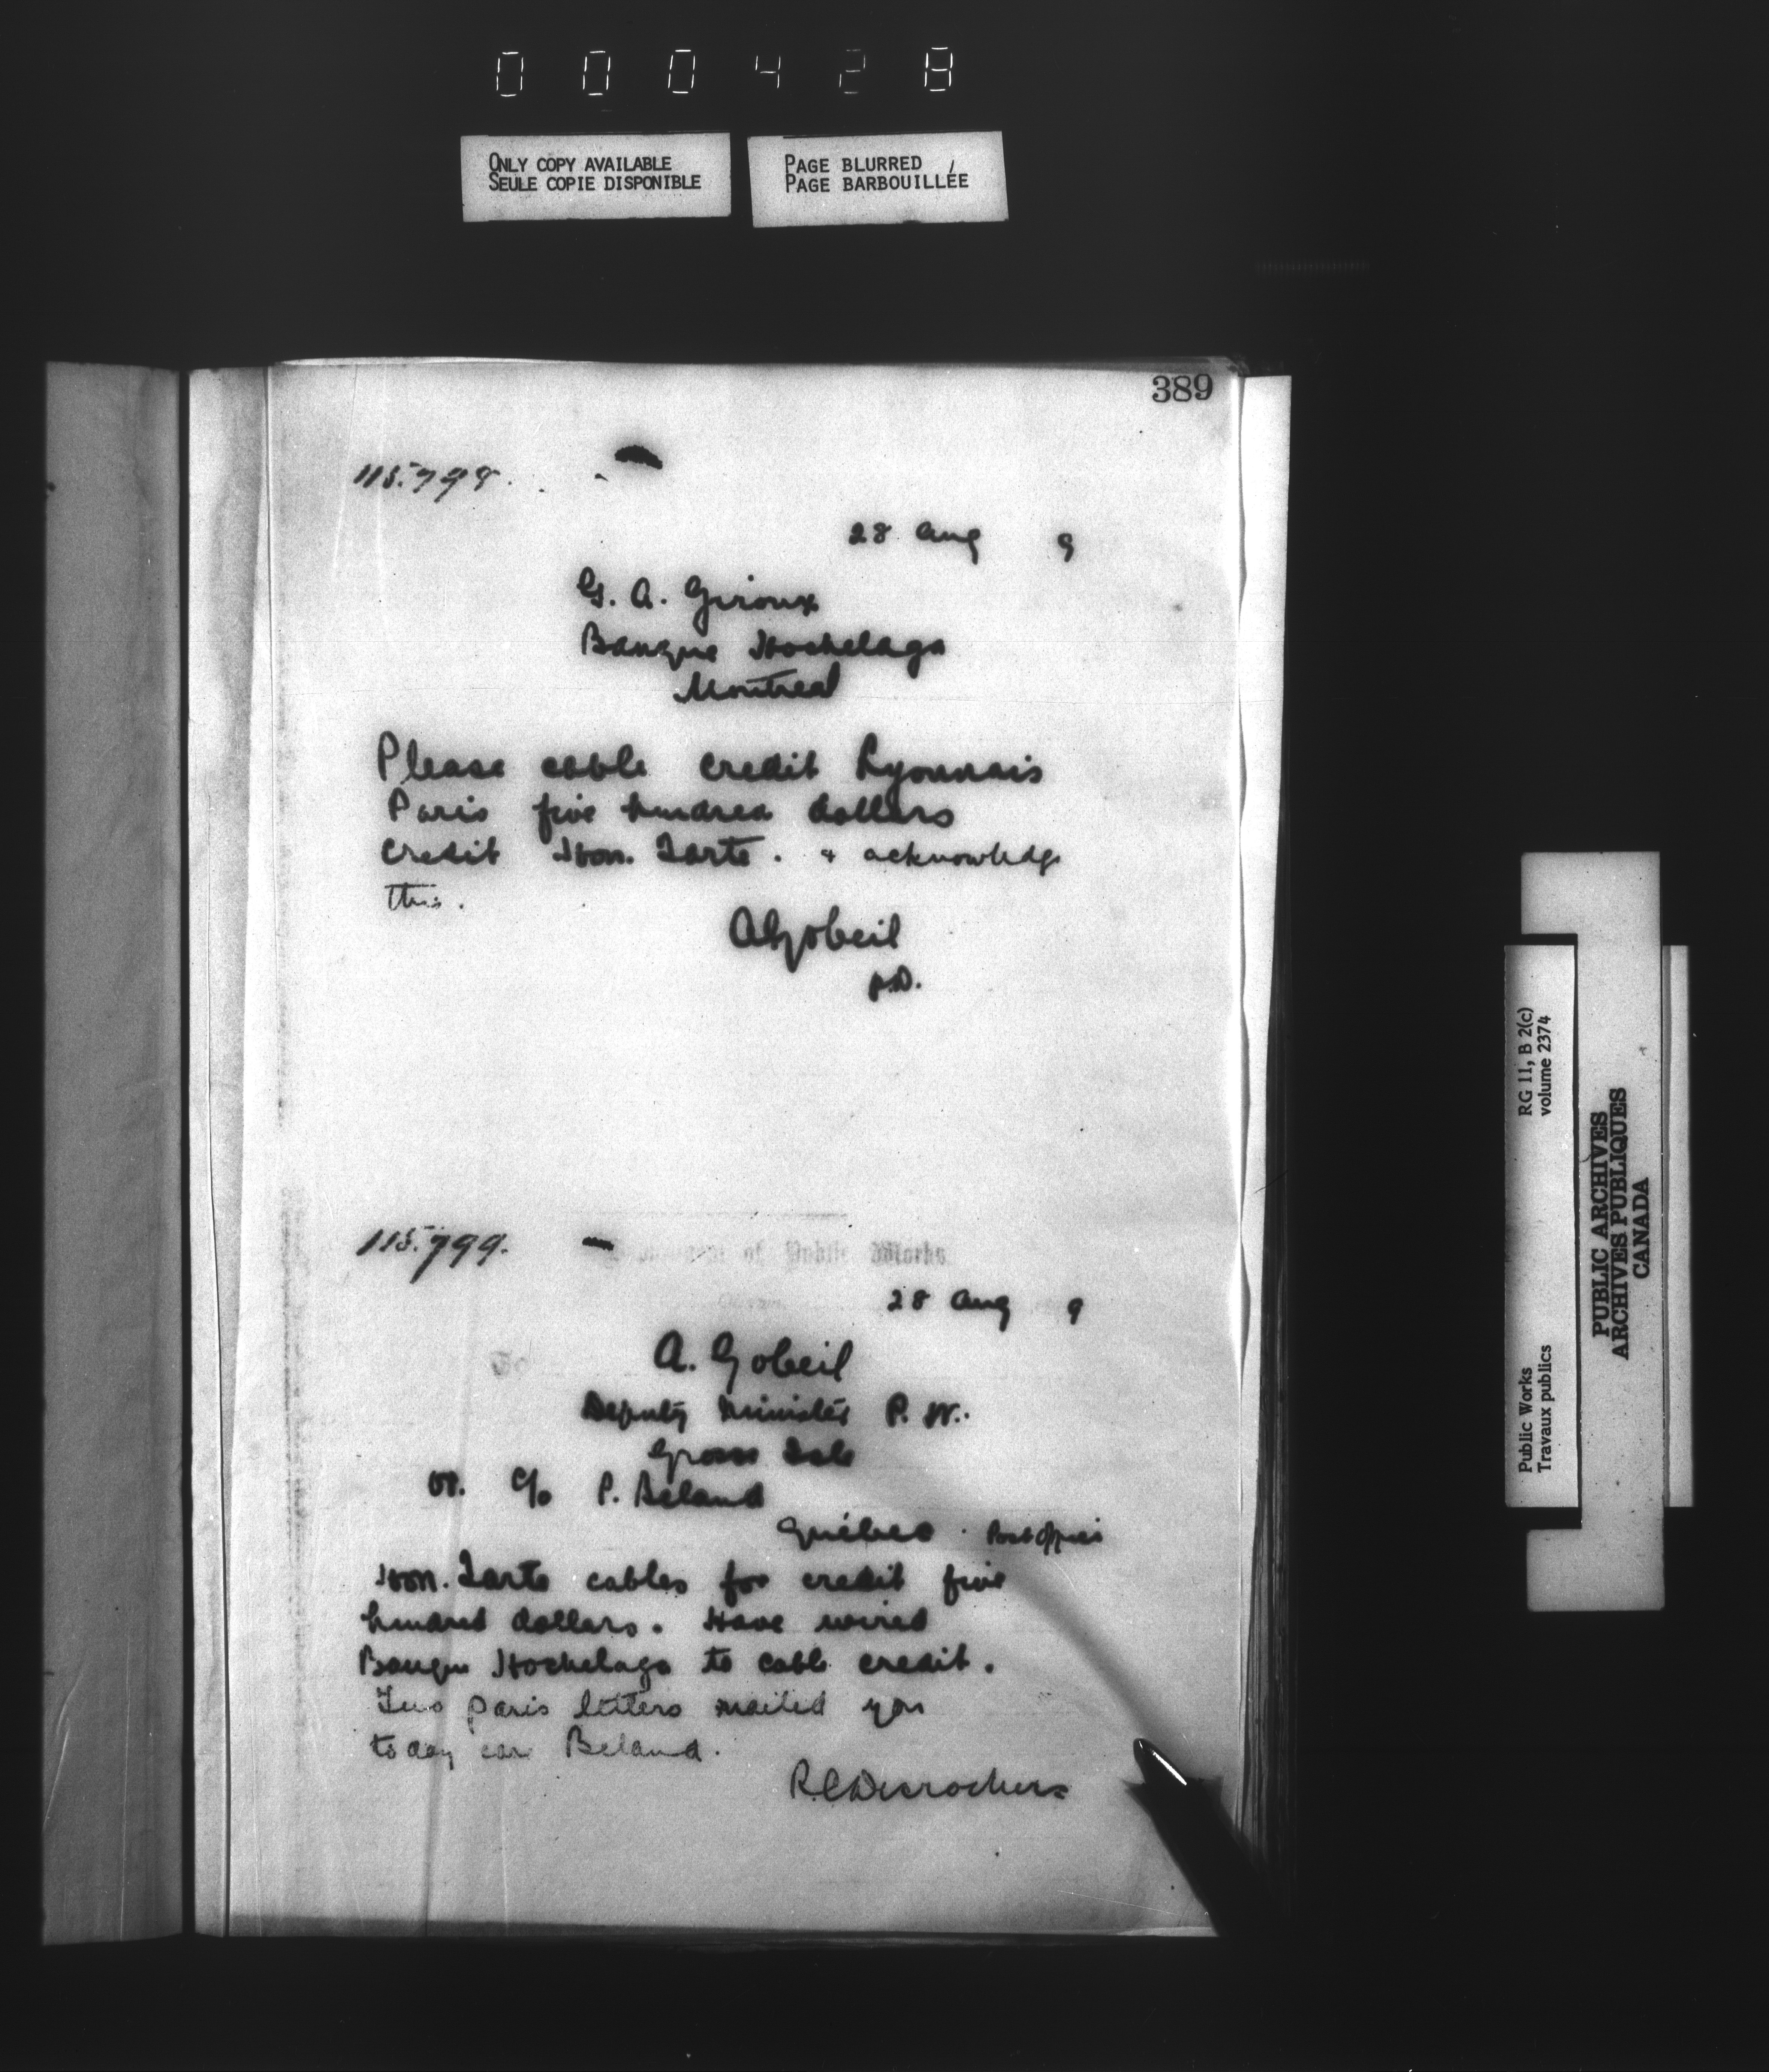 000428
ONLY COPY AVAILABLE
SEULE COPIE DISPONIBLE
PAGE BLURRED
PAGE BARBOUILLÉE
389
115.798.
28 Aug 9
G. A. Giroux
Banque Hochelaga
Montreal
Please cable credit Lyonnais
Paris five hundred dollars
credit Hon. Tarte. & acknowledge
this.
AGobeil
p.D.
115.799.
of Public Works
28 Aug 9
A. Gobeil
Deputy Minister P. W.
Grosse Isle
or. c/o P. Beland
Québec. Post Office
Hon. Tarte cables for credit five
hundred dollars. Have wired
Banque Hochelaga to cable credit.
Two paris letters mailed you
today care Beland.
R.C.Desrochers
RG 11, B 2(c)
volume 2374
Public Works
Travaux publics
PUBLIC ARCHIVES
ARCHIVES PUBLIQUES
CANADA